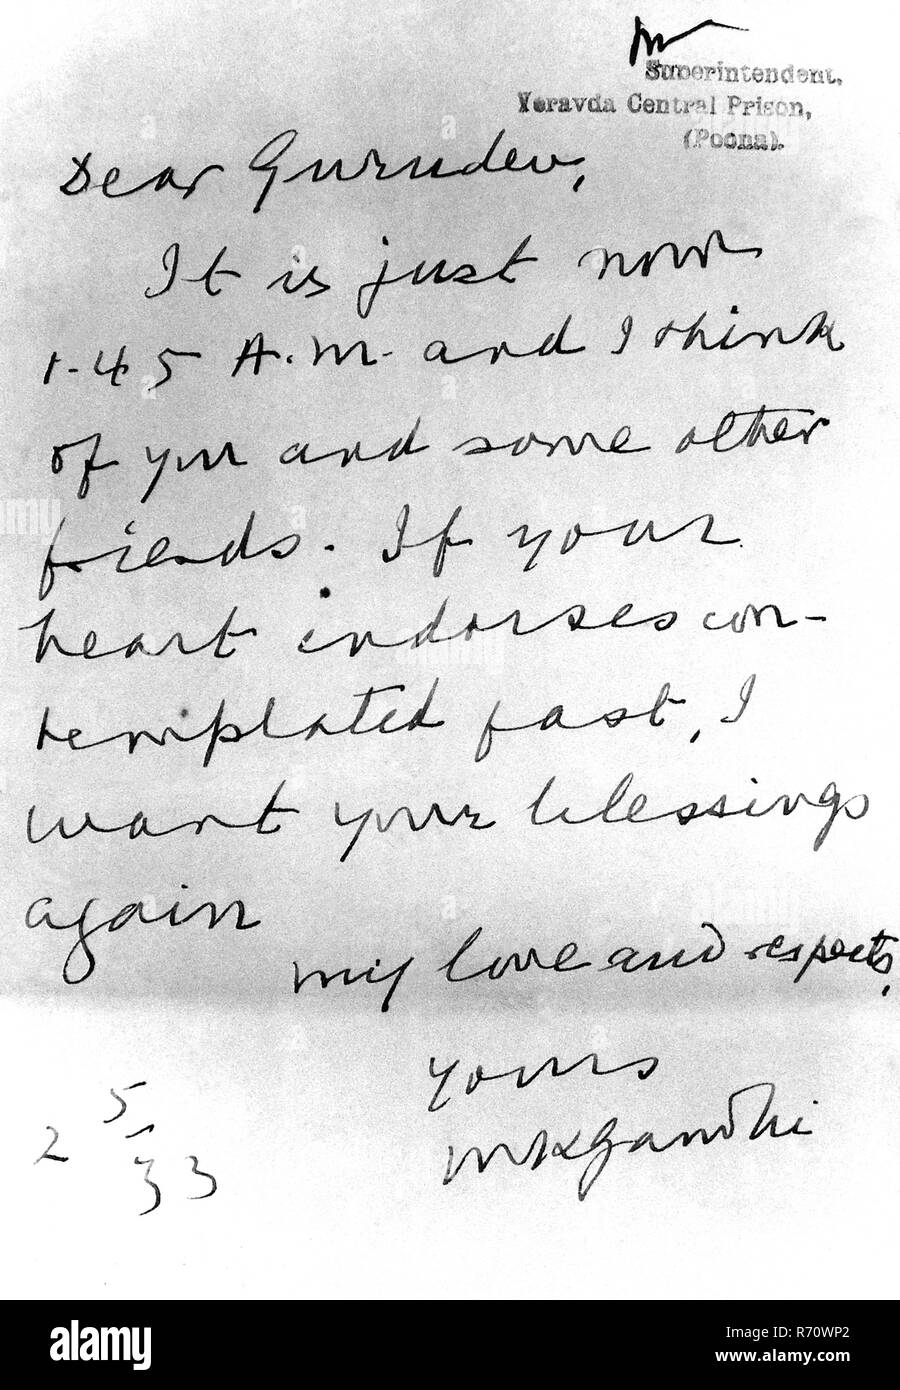 Superintendent,
Yeravda Central Prison,
(Poona).
Dear Gurudev,
It is just now
1.45 A.M. and I think
of you and some other
friends. If your
heart endorses con-
templated fast, I
want your blessings
again
my love and respects,
yours
MKGandhi
2 5/33
alamy
Image ID: R70WP2
www.alamy.com